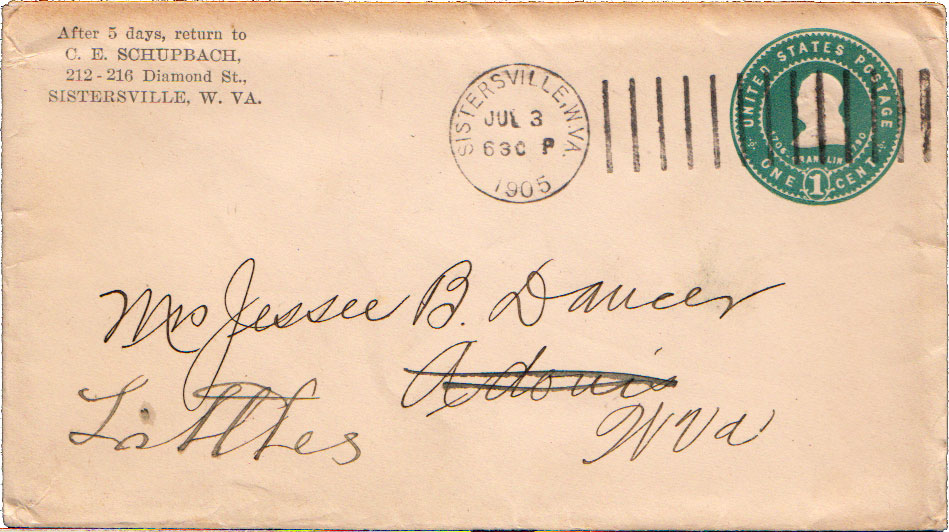 After 5 days, return to
C. E. SCHUPBACH,
212-216 Diamond St.,
SISTERSVILLE, W. VA.
SISTERSVILLE, W. VA.
JUL 3
630 P
1905
UNITED STATES POSTAGE
1706 FRANKLIN 1790
ONE 1 CENT
Mrs Jessee B. Dancer
Adonis
Littles
W Va